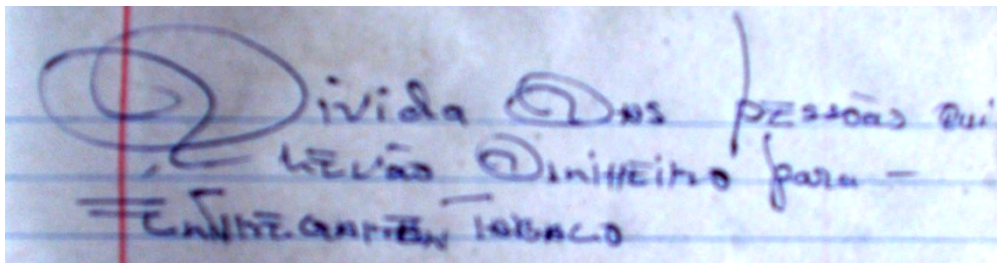 Divida Dns pessoas qui
levão Dinheiro para -
Entregarem Tabaco